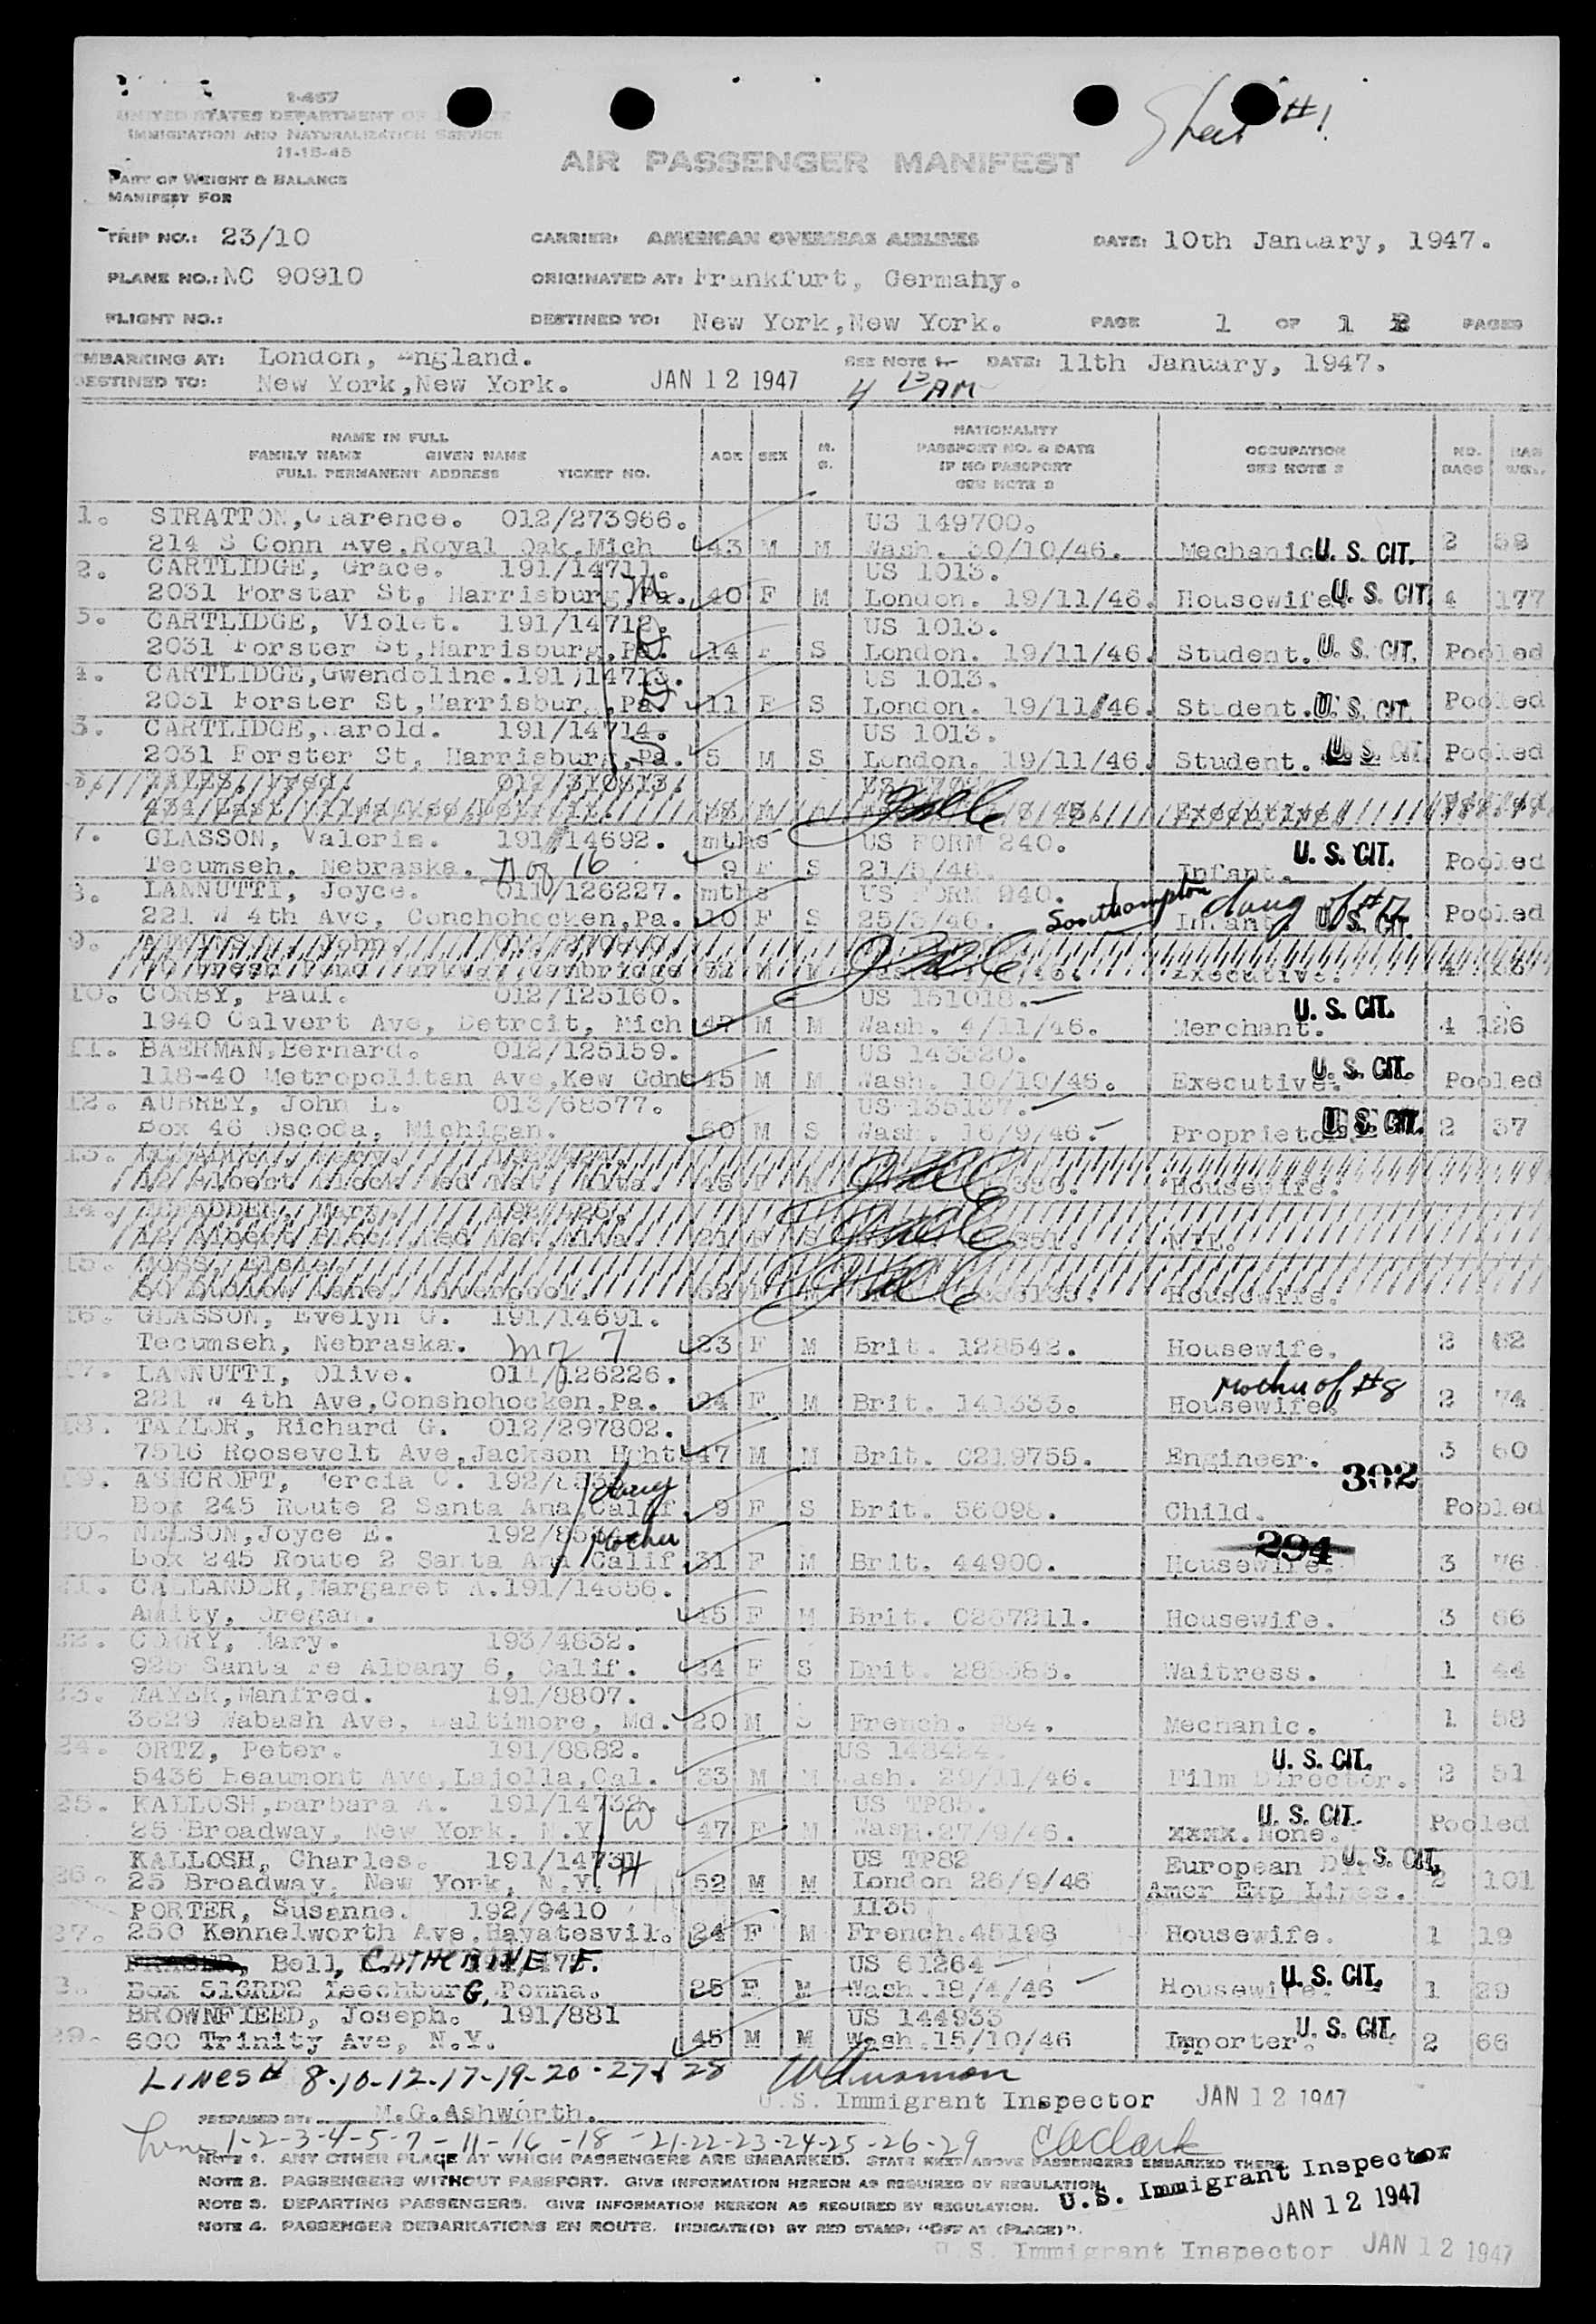 Sheet #1
1-457
UNITED STATES DEPARTMENT OF JUSTICE
IMMIGRATION AND NATURALIZATION SERVICE
11-15-45
AIR PASSENGER MANIFEST
PART OF WEIGHT & BALANCE
MANIFEST FOR
TRIP NO.: 23/10 CARRIER: AMERICAN OVERSEAS AIRLINES DATE: 10th January, 1947.
PLANE NO.: NC 90910 ORIGINATED AT: Frankfurt, Germany.
FLIGHT NO.: DESTINED TO: New York, New York. PAGE 1 OF 1 PAGES
EMBARKING AT: London, England. SEE NOTE 1 DATE: 11th January, 1947.
DESTINED TO: New York, New York. JAN 12 1947 4 15 AM
NAME IN FULL
FAMILY NAME GIVEN NAME
FULL PERMANENT ADDRESS TICKET NO.
AGE SEX M. S.
NATIONALITY
PASSPORT NO. & DATE
IF NO PASSPORT
SEE NOTE 2
OCCUPATION
SEE NOTE 3
NO. BAGS
BAG WGT.
1. STRATTON, Clarence. 012/273966. US 149700.
214 S Conn Ave, Royal Oak, Mich 43 M M Wash. 30/10/46. Mechanic U. S. CIT. 2 58
2. CARTLIDGE, Grace. 191/14711. US 1013.
2031 Forstar St, Harrisburg, Pa. 40 F M London. 19/11/46. Housewife. U. S. CIT. 4 177
3. CARTLIDGE, Violet. 191/14712. US 1013.
2031 Forster St, Harrisburg, Pa. 14 F S London. 19/11/46. Student. U. S. CIT. Pooled
4. CARTLIDGE, Gwendoline. 191/14713. US 1013.
2031 Forster St, Harrisburg, Pa. 11 F S London. 19/11/46. Student. U. S. CIT. Pooled
5. CARTLIDGE, Harold. 191/14714. US 1013.
2031 Forster St, Harrisburg, Pa. 5 M S London. 19/11/46. Student. U. S. CIT. Pooled
012/310813.
Executive
7. GLASSON, Valerie. 191/14692. mths US FORM 240.
Tecumseh, Nebraska. D of 16 9 F S 21/5/46. Infant. U. S. CIT. Pooled
8. LANNUTTI, Joyce. 011/126227. mths US FORM 240.
221 W 4th Ave, Conchohocken, Pa. 10 F S 25/3/46. Southampton Infant daug of #17 U. S. CIT. Pooled
9.
Executive.
10. CORBY, Paul. 012/125160. US 151018.
1940 Calvert Ave, Detroit, Mich 47 M M Wash. 4/11/46. Merchant. U. S. CIT. 4 126
11. BAERMAN, Bernard. 012/125159. US 143520.
118-40 Metropolitan Ave, Kew Gdns 45 M M Wash. 10/10/46. Executive. U. S. CIT. Pooled
12. AUBREY, John L. 013/68577. US 135137.
Box 46 Oscoda, Michigan. 60 M S Wash. 16/9/46. Proprietor U. S. CIT. 2 37
13.
Housewife.
14. Mary.
Nil.
15.
Housewife.
16. GLASSON, Evelyn G. 191/14691.
Tecumseh, Nebraska. m of 7 23 F M Brit. 128542. Housewife. 2 42
17. LANNUTTI, Olive. 011/126226.
221 W 4th Ave, Conshohocken, Pa. 24 F M Brit. 141333. Housewife. Mother of #8 2 74
18. TAYLOR, Richard G. 012/297802.
7516 Roosevelt Ave, Jackson Hght 47 M M Brit. C219755. Engineer. 3 60
19. ASHCROFT, Mercia C. 192/
Box 245 Route 2 Santa Ana, Calif. daug 9 F S Brit. 56098. Child. 302 Pooled
20. NELSON, Joyce E. 192/
Box 245 Route 2 Santa Ana Calif mother 31 F M Brit. 44900. Housewife. 294 3 76
21. CALLANDER, Margaret A. 191/14656.
Amity, Oregan. 45 F M Brit. C267211. Housewife. 3 66
22. CORRY, Mary. 193/4832.
925 Santa Fe Albany 6, Calif. 24 F S Brit. Waitress. 1 44
23. MAYER, Manfred. 191/8807.
3629 Wabash Ave, Baltimore, Md. 20 M S French. Mechanic. 1 58
24. ORTZ, Peter. 191/8882. US
5436 Beaumont Ave, Lajolla, Cal. 33 M M Wash. 29/11/46. Film Director. U. S. CIT. 2 51
25. KALLOSH, Barbara A. 191/14732. W US TP85.
25 Broadway, New York, N.Y. 47 F M Wash. 27/9/46. None. U. S. CIT. Pooled
26. KALLOSH, Charles. 191/14731 H US TP82 European U. S. CIT.
25 Broadway, New York, N.Y. 52 M M London 26/9/46 Amer Exp Lines. 2 101
27. PORTER, Susanne. 192/9410 1135
250 Kennelworth Ave, Hayatesvil. 24 F M French. 45198 Housewife. 1 19
Bell, CATHERINE F. US 61264
Box 516RD2 LeechburG, Penna. 25 F M Wash. 18/4/46 Housewife. U. S. CIT. 1 29
29. BROWNFIEED, Joseph. 191/881 US 144933
600 Trinity Ave, N.Y. 45 M M Wash. 15/10/46 Importer. U. S. CIT. 2 66
LINES # 8-10-12-17-19-20-27 & 28
U.S. Immigrant Inspector JAN 12 1947
PREPARED BY: M.G.Ashworth.
Lines 1-2-3-4-5-7-11-16-18-21-22-23-24-25-26-29 Clark
NOTE 1. ANY OTHER PLACE AT WHICH PASSENGERS ARE EMBARKED. STATE NEXT ABOVE PASSENGERS EMBARKED THERE.
NOTE 2. PASSENGERS WITHOUT PASSPORT. GIVE INFORMATION HEREON AS REQUIRED BY REGULATION.
U.S. Immigrant Inspector
NOTE 3. DEPARTING PASSENGERS. GIVE INFORMATION HEREON AS REQUIRED BY REGULATION.
JAN 12 1947
NOTE 4. PASSENGER DEBARKATIONS EN ROUTE. INDICATE(D) BY RED STAMP: "OFF AT (PLACE)".
U. S. Immigrant Inspector JAN 12 1947